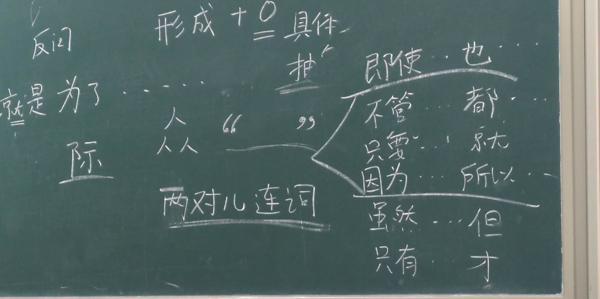 反问
形成+O 具体
抽
就是为了……
际
人
人人
“ ”
两对儿连词
即使…也…
不管…都…
只要…就
因为…所以…
虽然…但
只有…才